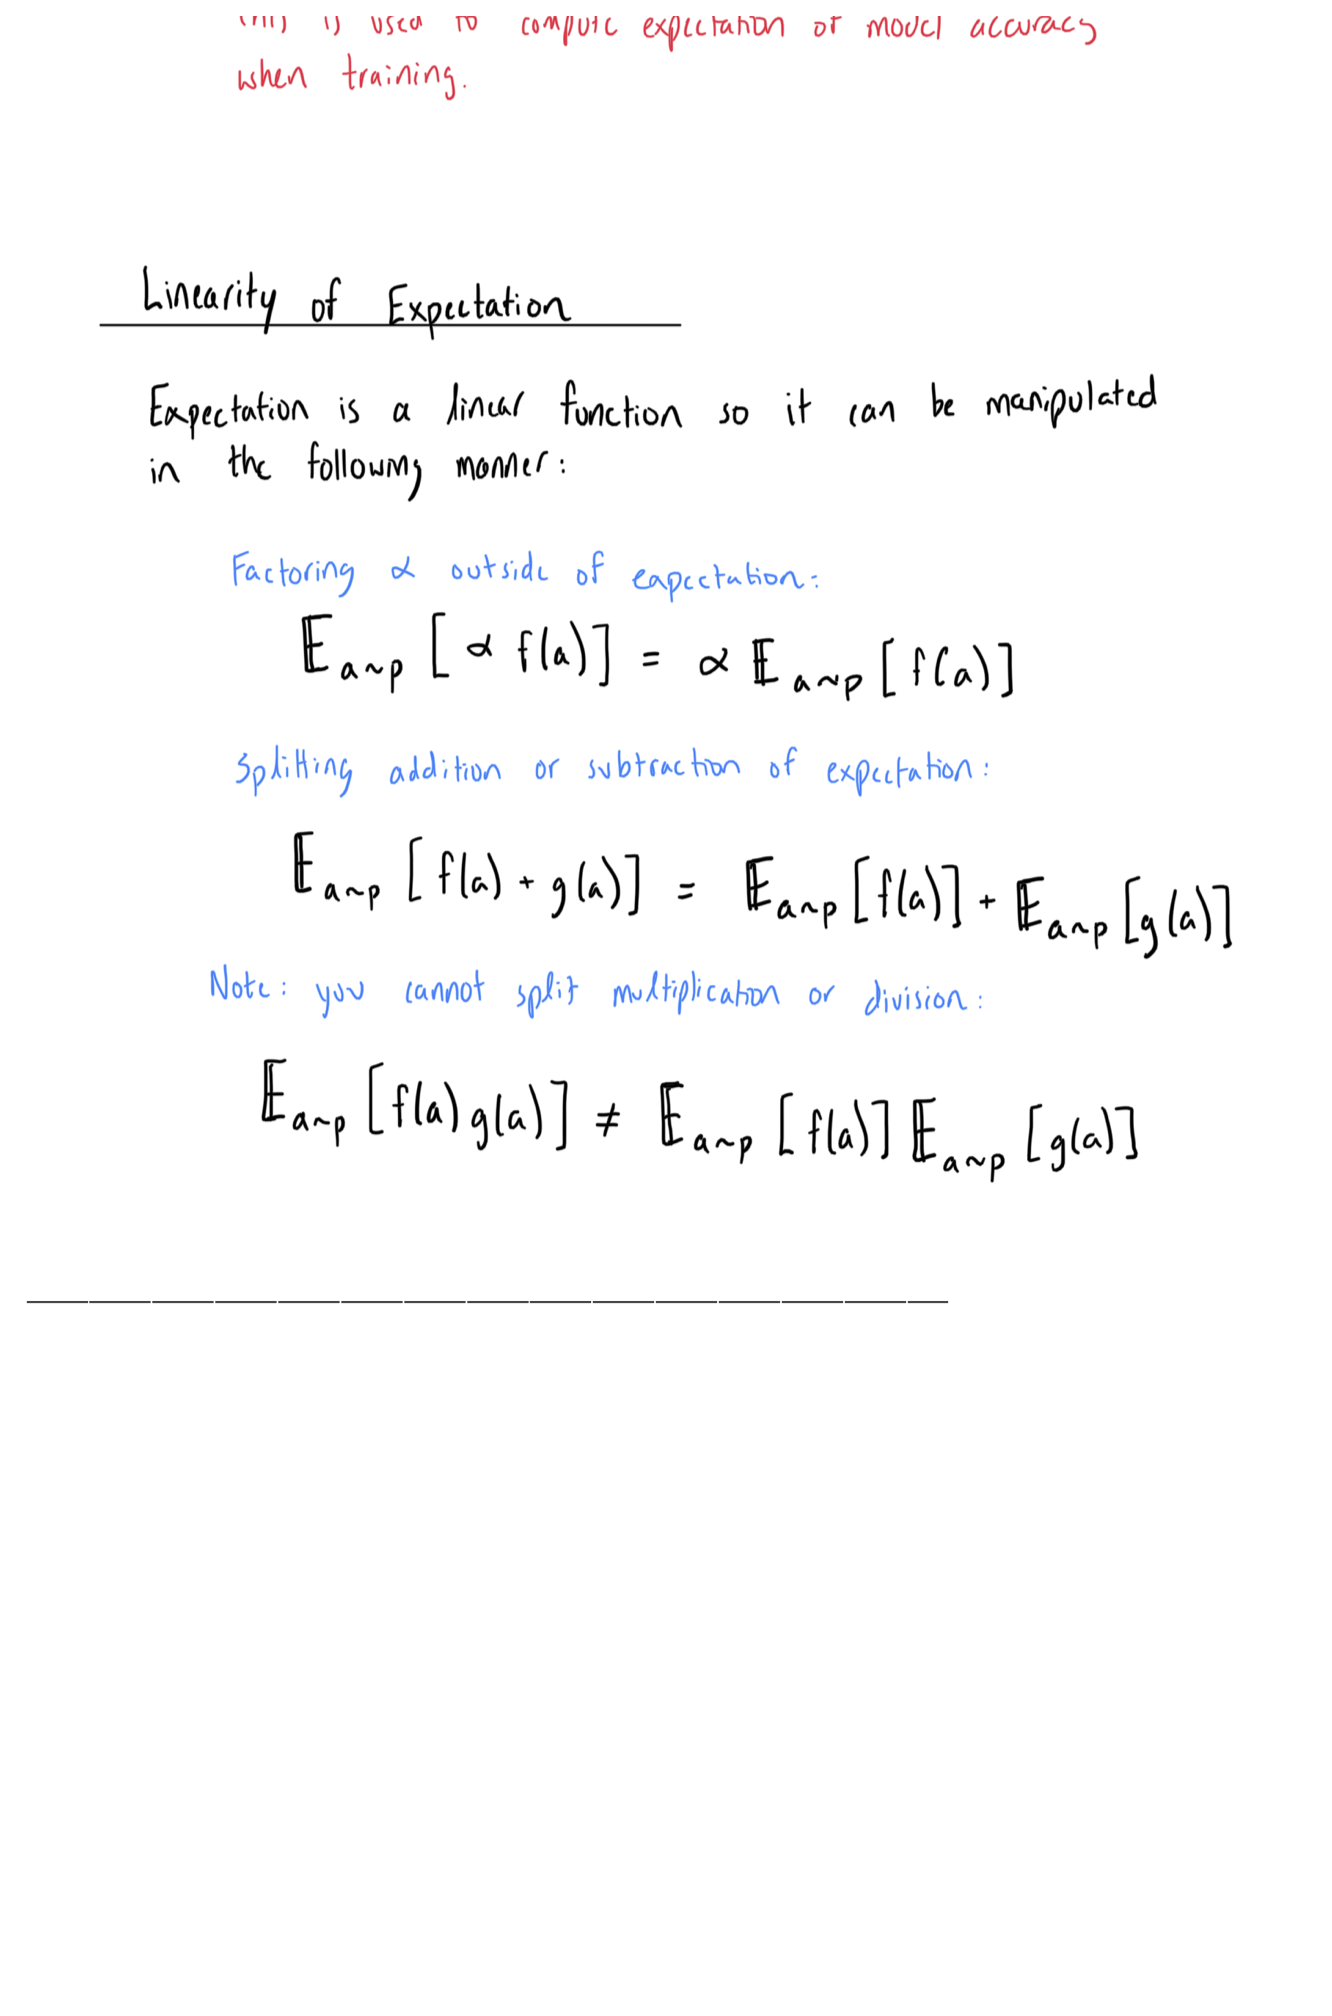 is used to compute expectation of model accuracy
when training.
Linearity of Expectation
Expectation is a linear function so it can be manipulated
in the following manner:
Factoring α outside of expectation:
𝔼a~p [α f(a)] = α 𝔼a~p [f(a)]
Splitting addition or subtraction of expectation:
𝔼a~p [f(a) + g(a)] = 𝔼a~p [f(a)] + 𝔼a~p [g(a)]
Note: you cannot split multiplication or division:
𝔼a~p [f(a) g(a)] ≠ 𝔼a~p [f(a)] 𝔼a~p [g(a)]